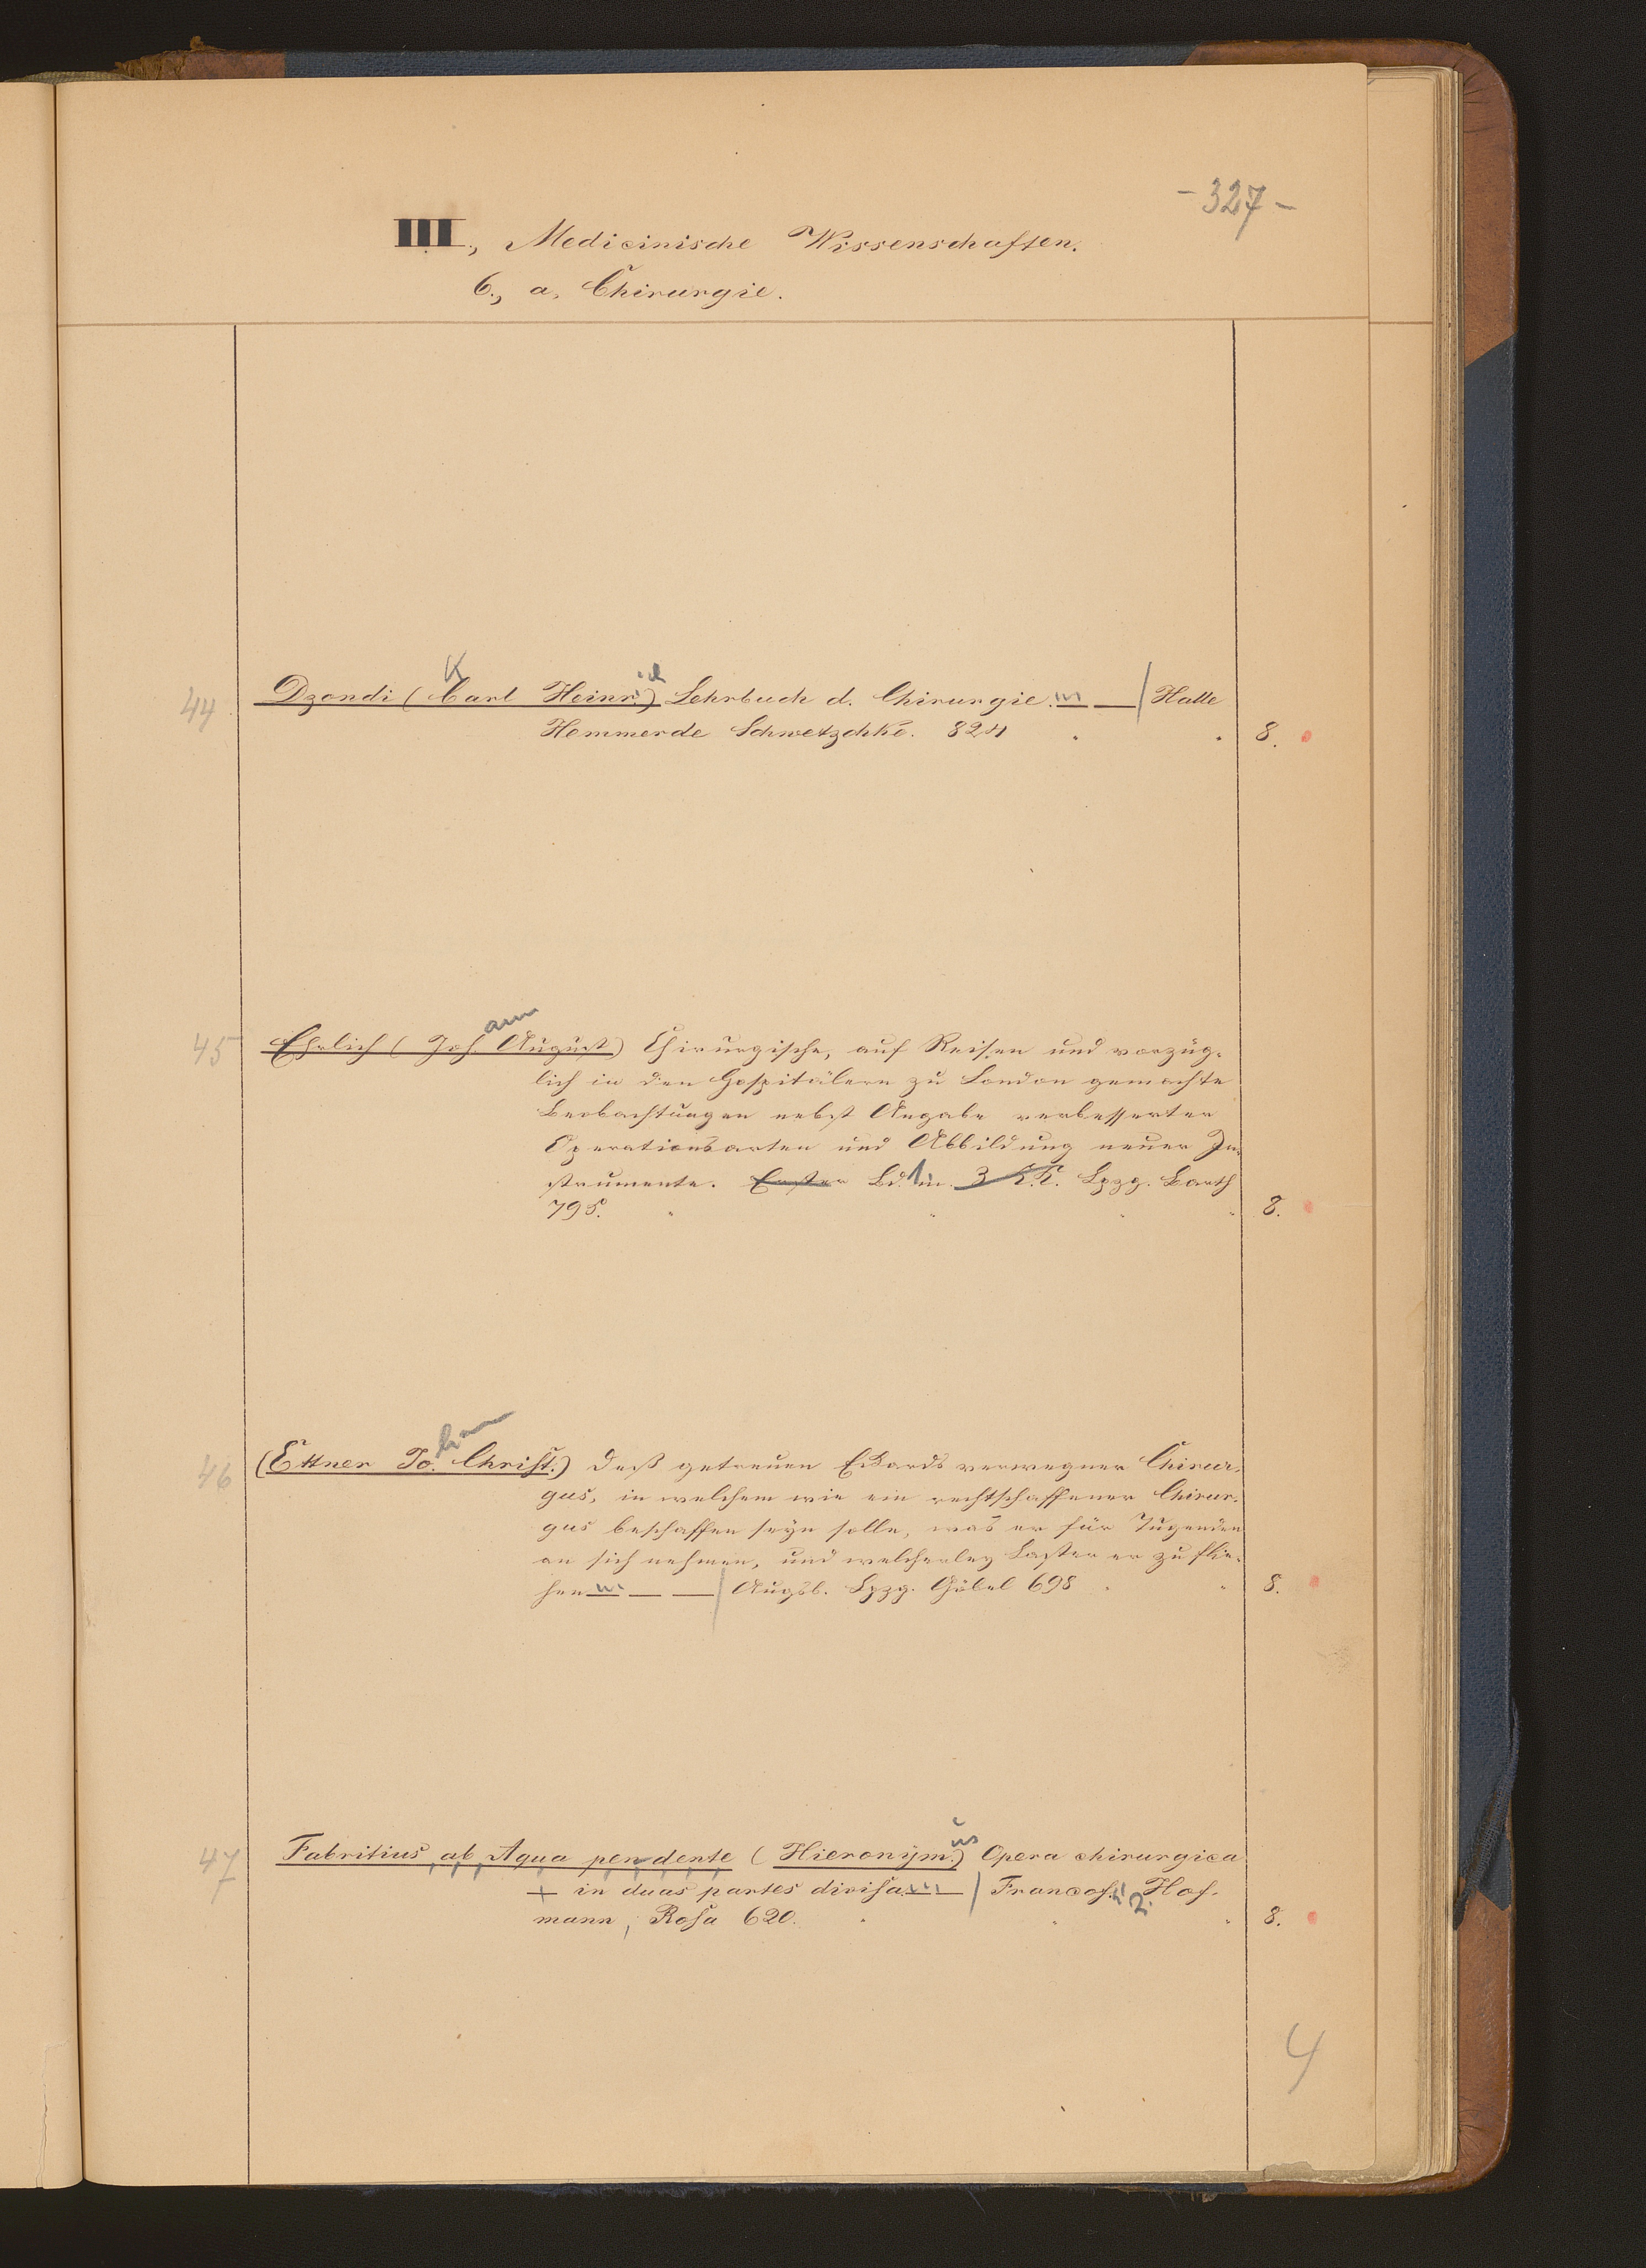 - 327 -
III., Medicinische Wissenschaften.
6., a, Chirurgie.
44 Dzondi (Carl Heinr.) Lehrbuch d. Chirurgie. / Halle
K ich
Hemmerde Schwetzschke. 824 8.
45 Ehrlich (Joh. August) Chirurgische, auf Reisen und vorzüg-
ann
lich in den Hospitälern zu London gemachte
Beobachtungen nebst Angabe verbesserter
Operationsarten und Abbildung neuer In-
strumente. Erster Bd. 1 m. 3 K.K. Lpzg. Barth
795. 8.
46 (Ettner Jo. Christ.) Deß getreuen Eckards verwegner Chirur-
gus, in welchem wie ein rechtschaffener Chirur-
gus beschaffen seyn solle, was er für Tugenden
an sich nehmen, und welcherley Laster er zu flie-
hen / Augsb. Lpzg. Göbel 698 8.
47 Fabritius, ab Aqua pendente (Hieronijm.) Opera chirurgica
us
+ in duas partes divisa / Francof. Hof-
2.
mann, Rosa 620. 8.
4